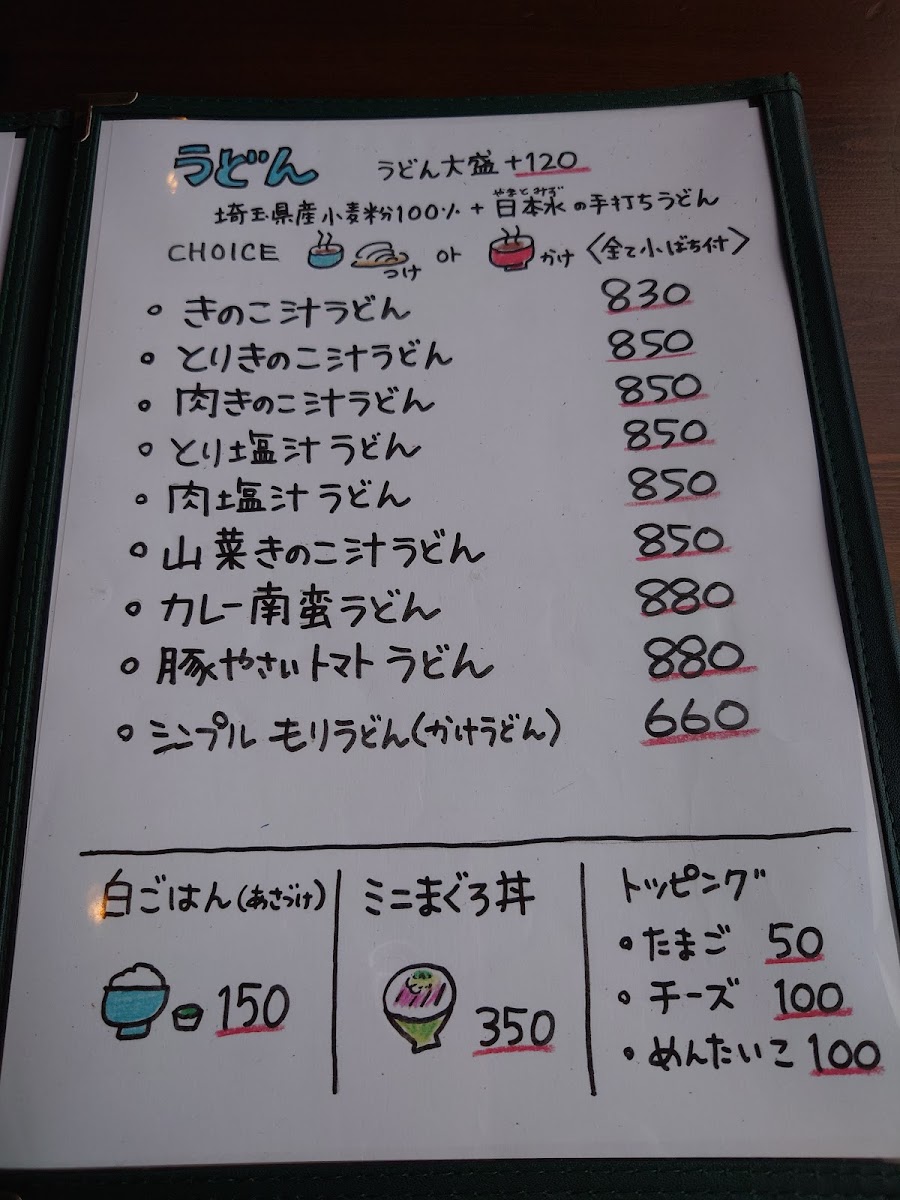 うどん うどん大盛 +120
埼玉県産小麦粉100% + 日本水の手打ちうどん
やまとみず
CHOICE つけ or かけ 〈全て小ばち付〉
・きのこ汁うどん 830
・とりきのこ汁うどん 850
・肉きのこ汁うどん 850
・とり塩汁うどん 850
・肉塩汁うどん 850
・山菜きのこ汁うどん 850
・カレー南蛮うどん 880
・豚やさいトマトうどん 880
・シンプルもりうどん(かけうどん) 660
白ごはん(あさづけ)
150
ミニまぐろ丼
350
トッピング
・たまご 50
・チーズ 100
・めんたいこ 100